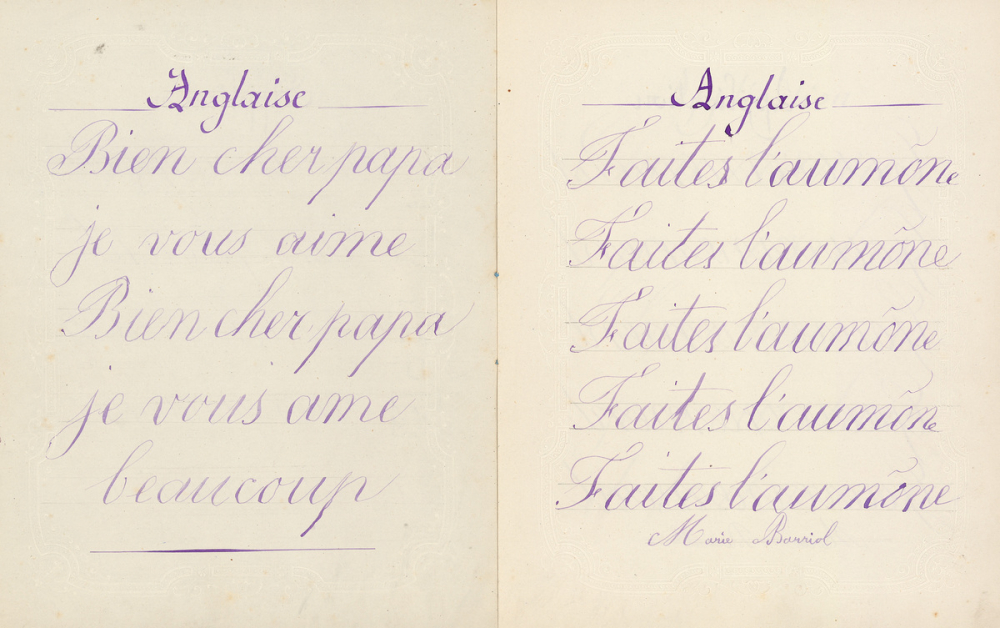 Anglaise
Bien cher papa
je vous aime
Bien cher papa
je vous ame
beaucoup
Anglaise
Faites l'aumône
Faites l'aumône
Faites l'aumône
Faites l'aumône
Faites l'aumône
Marie Barriol